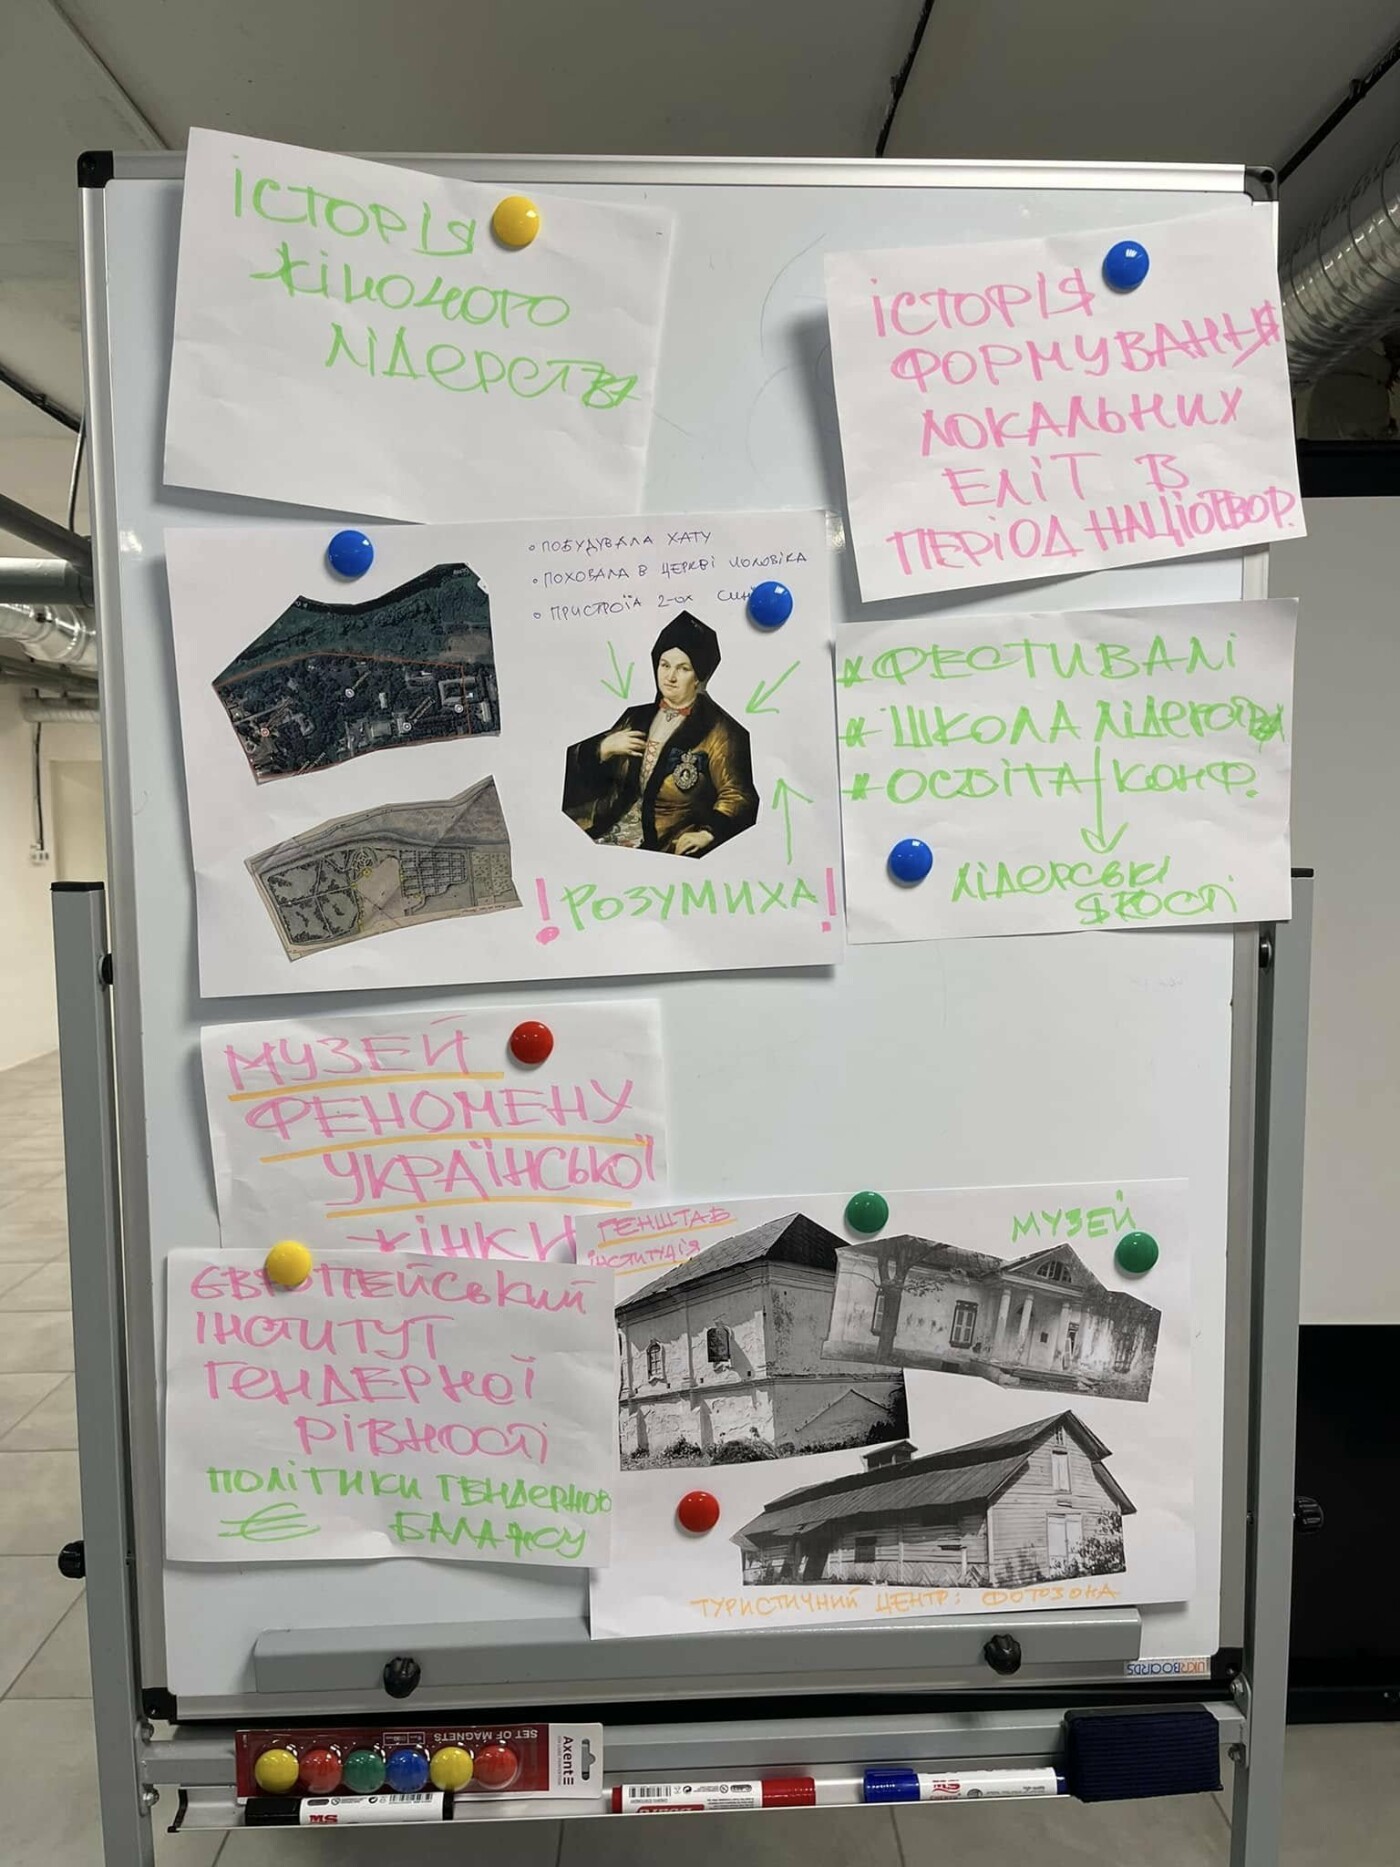 ІСТОРІЯ
ЖІНОЧОГО
ЛІДЕРСТВА
ІСТОРІЯ
ФОРМУВАННЯ
ЛОКАЛЬНИХ
ЕЛІТ В
ПЕРІОД НАЦІЄТВОР.
• ПОБУДУВАЛА ХАТУ
• ПОХОВАЛА В ЦЕРКВІ ЧОЛОВІКА
• ПРИСТРОЇЛА 2-ОХ
! РОЗУМИХА !
* ФЕСТИВАЛІ
* ШКОЛА ЛІДЕРСТВА
* ОСВІТА / КОНФ.
ЛІДЕРСЬКІ
ЯКОСТІ
МУЗЕЙ
ФЕНОМЕНУ
УКРАЇНСЬКОЇ
ЖІНКИ
ЄВРОПЕЙСЬКИЙ
ІНСТИТУТ
ГЕНДЕРНОЇ
РІВНОСТІ
ПОЛІТИКИ ГЕНДЕРНОГО
БАЛАНСУ
ГЕНШТАБ
ІНСТИТУЦІЯ
МУЗЕЙ
ТУРИСТИЧНИЙ ЦЕНТР: ФОТОЗОНА
UKRBOARDS
SET OF MAGNETS
Axent